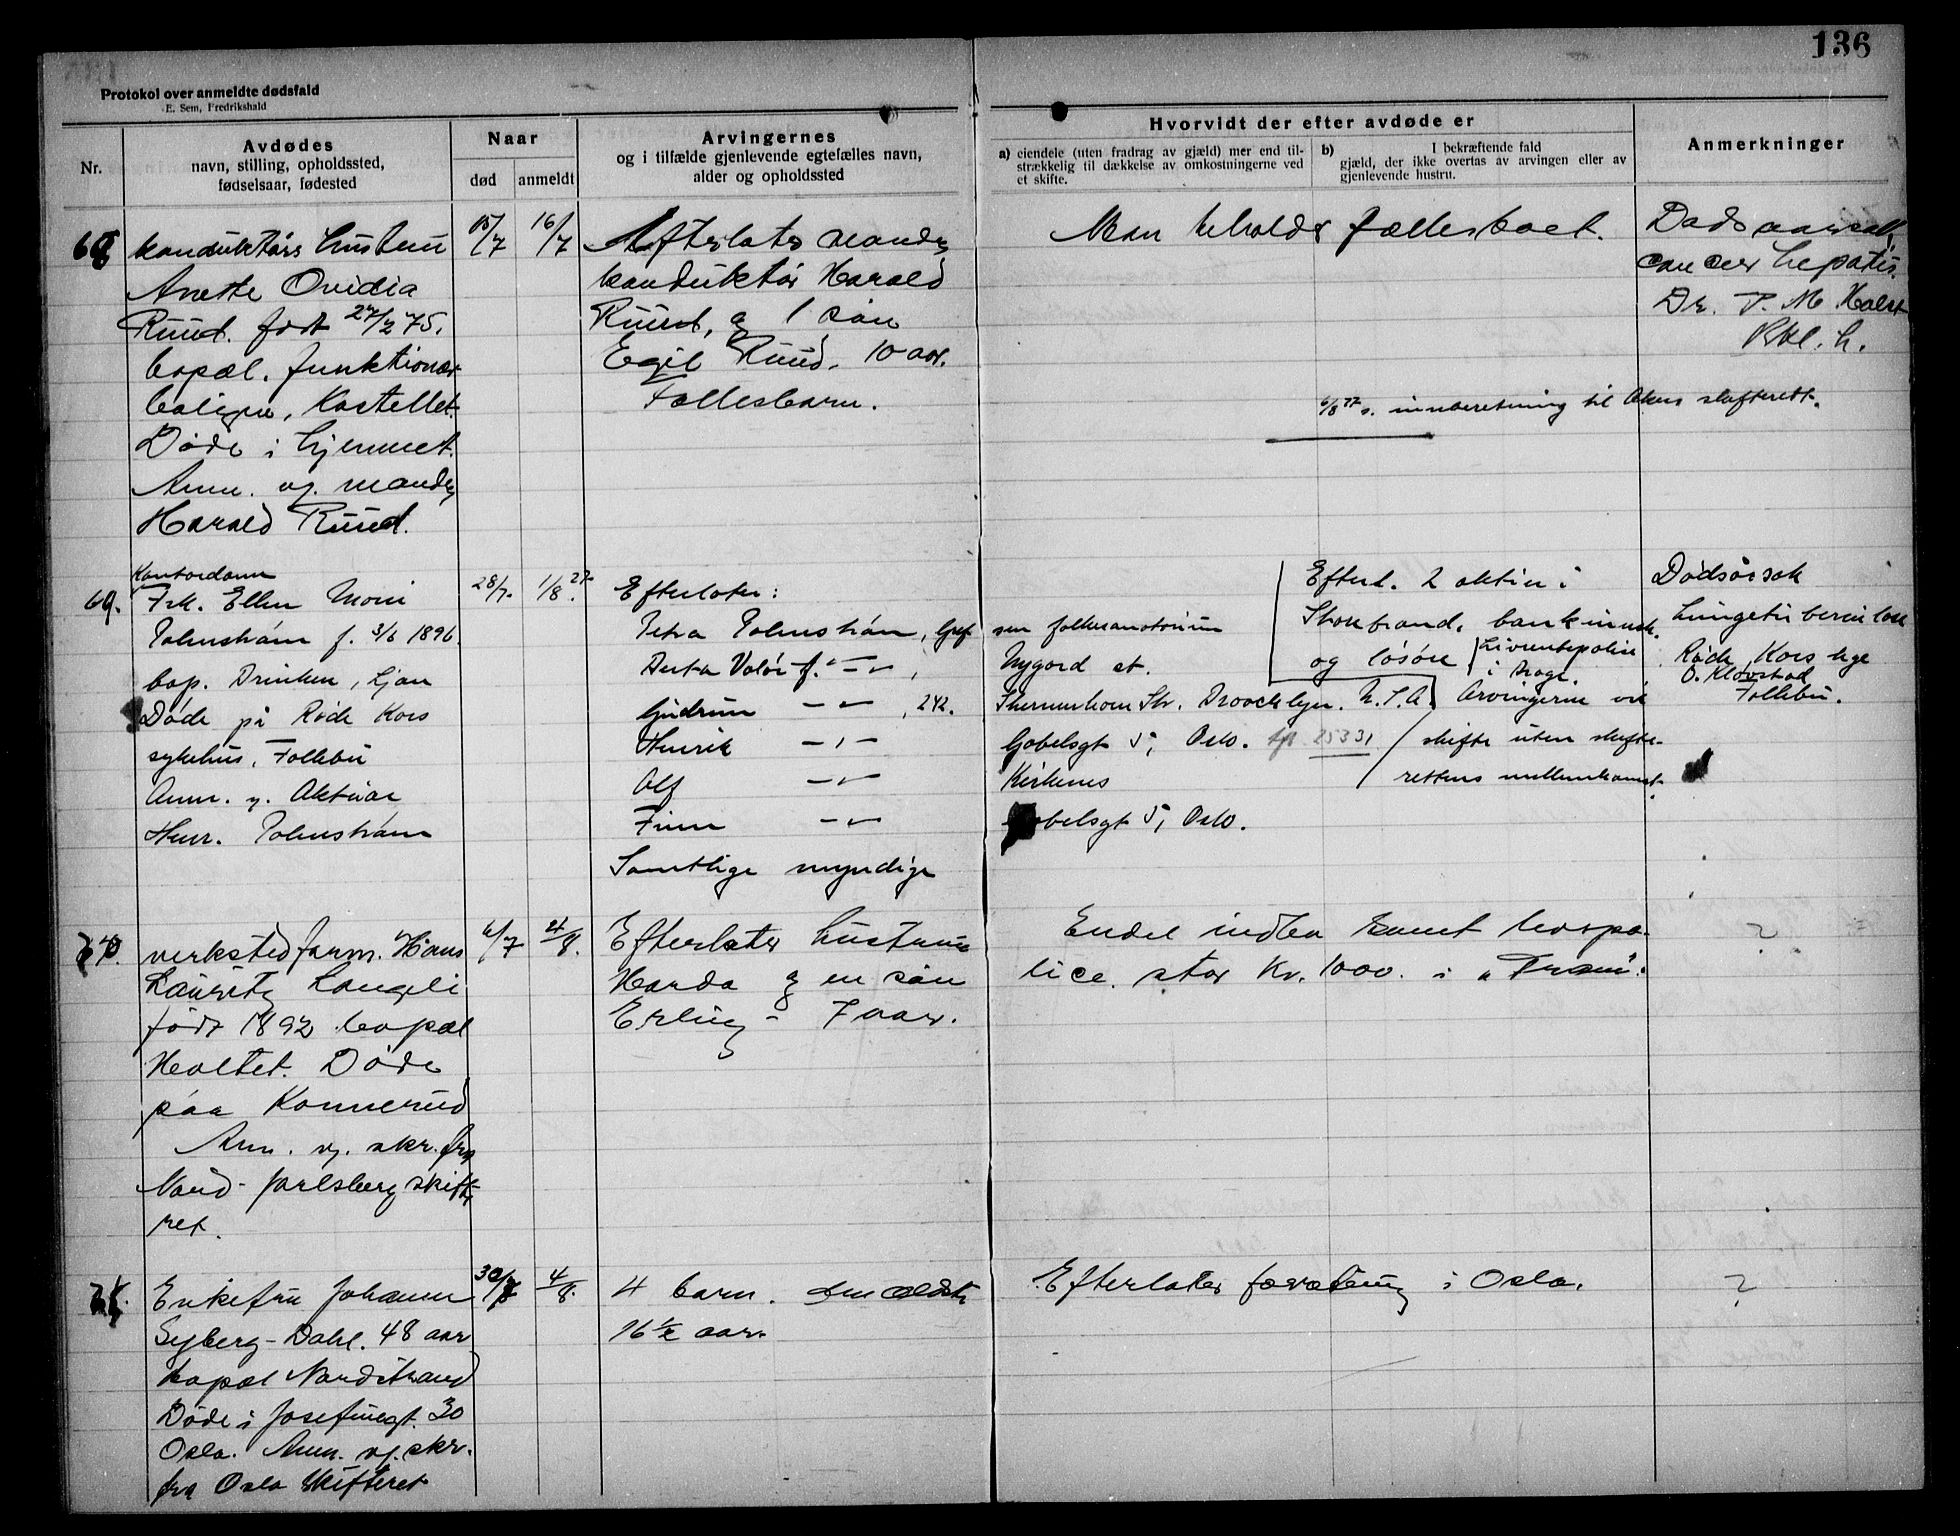 136
Protokol over anmeldte dødsfald
E. Sem, Fredrikshald
Nr.
Avdødes
navn, stilling, opholdssted,
fødselsaar, fødested
Naar
død
anmeldt
Arvingernes
og i tilfælde gjenlevende egtefælles navn,
alder og opholdssted
Hvorvidt der efter avdøde er
a) eiendele (uten fradrag av gjæld) mer end til-
strækkelig til dækkelse av omkostningerne ved
et skifte.
b) I bekræftende fald
gjæld, der ikke overtas av arvingen eller av
gjenlevende hustru.
Anmerkninger
68
konduktørs hustru
Anette Ovidia
Ruud. født 27/2 75.
bopæl. funktionær
boligen, Kastellet.
Døde i hjemmet.
Anm. av. manden
Harald Ruud.
15/7
16/7
Efterlater manden
konduktør Harald
Ruud, og 1 søn
Egil Ruud. 10 aar.
Fællesbarn.
Man beholder fællesboet.
Dødsaarsak
cancer hepatis.
Dr. P. M. Holst
6/8 27 s. innberetning til Aker skifterett.
69.
Kontordame
Frk. Ellen Moni
Palmstrøm f. 3/6 1896
bop. Drinken, Ljan
Døde på Røde Kors
sykehus, Follebu
Anm. av. Aktuar
Henr. Palmstrøm
28/7.
1/8 27.
Efterlater:
Petra Palmstrøm,
Gudrun — " — , 242.
Henrik — " —
Alf — " —
Finn — " —
Samtlige myndige
Nygård st.
U.S.A.
Gabelsgt 5, Oslo. tlf. 25331
Kirkenes
Gabelsgt 5, Oslo.
Efterl. 2 aktier i
Storebrand, bankinnsk.
og løsøre
Livrentepolise
i Norge.
Arvingerne vil
skifte uten skifte-
rettens mellemkomst.
Dødsårsak
Lungetuberculose
Røde Kors lege
O. Klovstad
Follebu.
70.
verkstedform. Hans
Lauritz Langeli
født 1892 bopæl
Holtet. Døde
paa Konnerud
Anm. av. skr. fra
Nord-Jarlsberg skifte
ret.
6/7
2/8.
Efterlater hustru
Harda og en søn
Erling - 7 aar.
Endel indbo samt livspo-
lice stor Kr. 1000. i „Fram".
?
71.
Enkefru Johanne
Syberg-Dahl. 48 aar
bopæl Nordstrand
Døde i Josefinegt. 30
Oslo. Anm. av. skr.
fra Oslo Skifteret
30/7
4/8.
4 barn. den ældste
16 ½ aar.
Efterlater forretning i Oslo.
?